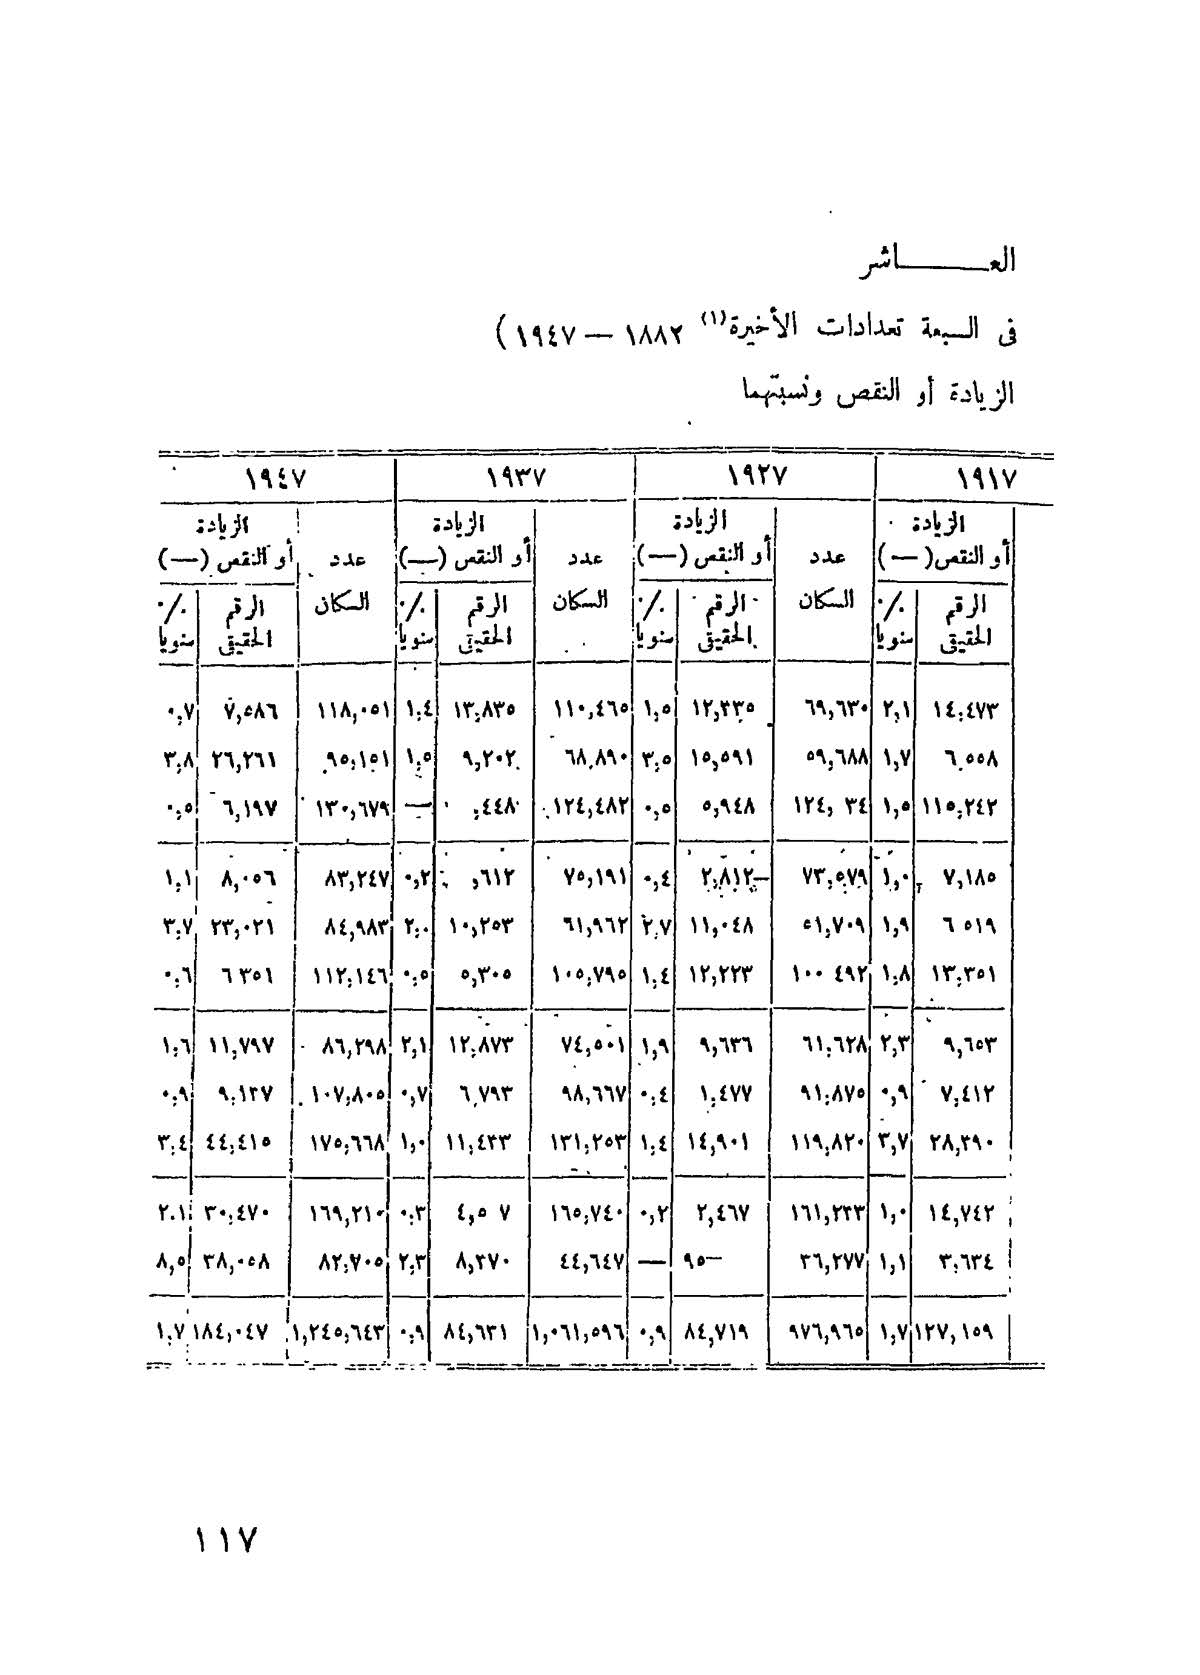 العـــــــاشر
فى السبعة تعدادات الأخيرة(١) ١٨٨٢ — ١٩٤٧ )
الزيادة أو النقص ونسبتهما
١٩١٧ ١٩٢٧ ١٩٣٧ ١٩٤٧
الزيادة الزيادة الزيادة الزيادة
أو النقص (—) عدد أو النقص (—) عدد أو النقص (—) عدد أو النقص (—)
الرقم ٪ السكان الرقم ٪ السكان الرقم ٪ السكان الرقم ٪
الحقيقى سنويا الحقيقى سنويا الحقيقى سنويا الحقيقى سنويا
١٤,٤٧٣ ٢,١ ٦٩,٦٣٠ ١٢,٣٣٥ ١,٥ ١١٠,٤٦٥ ١٣,٨٣٥ ١,٤ ١١٨,٠٥١ ٧,٥٨٦ ٠,٧
٦.٥٥٨ ١,٧ ٥٩,٦٨٨ ١٥,٥٩١ ٣,٥ ٦٨,٨٩٠ ٩,٢٠٢ ١,٥ ٩٥,١٥١ ٢٦,٢٦١ ٣,٨
١١٥,٢٤٢ ١,٥ ١٢٤, ٣٤ ٥,٩٤٨ ٠,٥ ١٢٤,٤٨٢ ,٤٤٨ — ١٣٠,٦٧٩ ٦,١٩٧ ٠,٥
٧,١٨٥ ١,٠ ٧٣,٥٧٩ —٢,٨١٢ ٠,٤ ٧٥,١٩١ ,٦١٢ ٠,٢ ٨٣,٢٤٧ ٨,٠٥٦ ١,١
٦ ٥١٩ ١,٩ ٥١,٧٠٩ ١١,٠٤٨ ٢,٧ ٦١,٩٦٢ ١٠,٢٥٣ ٢,٠ ٨٤,٩٨٣ ٢٣,٠٢١ ٣,٧
١٣,٣٥١ ١,٨ ١٠٠ ٤٩٢ ١٢,٢٢٣ ١,٤ ١٠٥,٧٩٥ ٥,٣٠٥ ٠,٥ ١١٢,١٤٦ ٦ ٣٥١ ٠,٦
٩,٦٥٣ ٢,٣ ٦١,٦٢٨ ٩,٦٣٦ ١,٩ ٧٤,٥٠١ ١٢,٨٧٣ ٢,١ ٨٦,٢٩٨ ١١,٧٩٧ ١,٦
٧,٤١٢ ٠,٩ ٩١,٨٧٥ ١,٤٧٧ ٠,٤ ٩٨,٦٦٧ ٦,٧٩٣ ٠,٧ ١٠٧,٨٠٥ ٩,١٣٧ ٠,٩
٢٨,٢٩٠ ٣,٧ ١١٩,٨٢٠ ١٤,٩٠١ ١,٤ ١٣١,٢٥٣ ١١,٤٣٣ ١,٠ ١٧٥,٦٦٨ ٤٤,٤١٥ ٣,٤
١٤,٧٤٢ ١,٠ ١٦١,٢٣٣ ٢,٤٦٧ ٠,٢ ١٦٥,٧٤٠ ٤,٥٠٧ ٠,٣ ١٦٩,٢١٠ ٣٠,٤٧٠ ٢,١
٣,٦٣٤ ١,١ ٣٦,٢٧٧ —٩٥ — ٤٤,٦٤٧ ٨,٣٧٠ ٢,٣ ٨٢,٧٠٥ ٣٨,٠٥٨ ٨,٥
١٢٧,١٥٩ ١,٧ ٩٧٦,٩٦٥ ٨٤,٧١٩ ٠,٩ ١,٠٦١,٥٩٦ ٨٤,٦٣١ ٠,٩ ١,٢٤٥,٦٤٣ ١٨٤,٠٤٧ ١,٧
١١٧